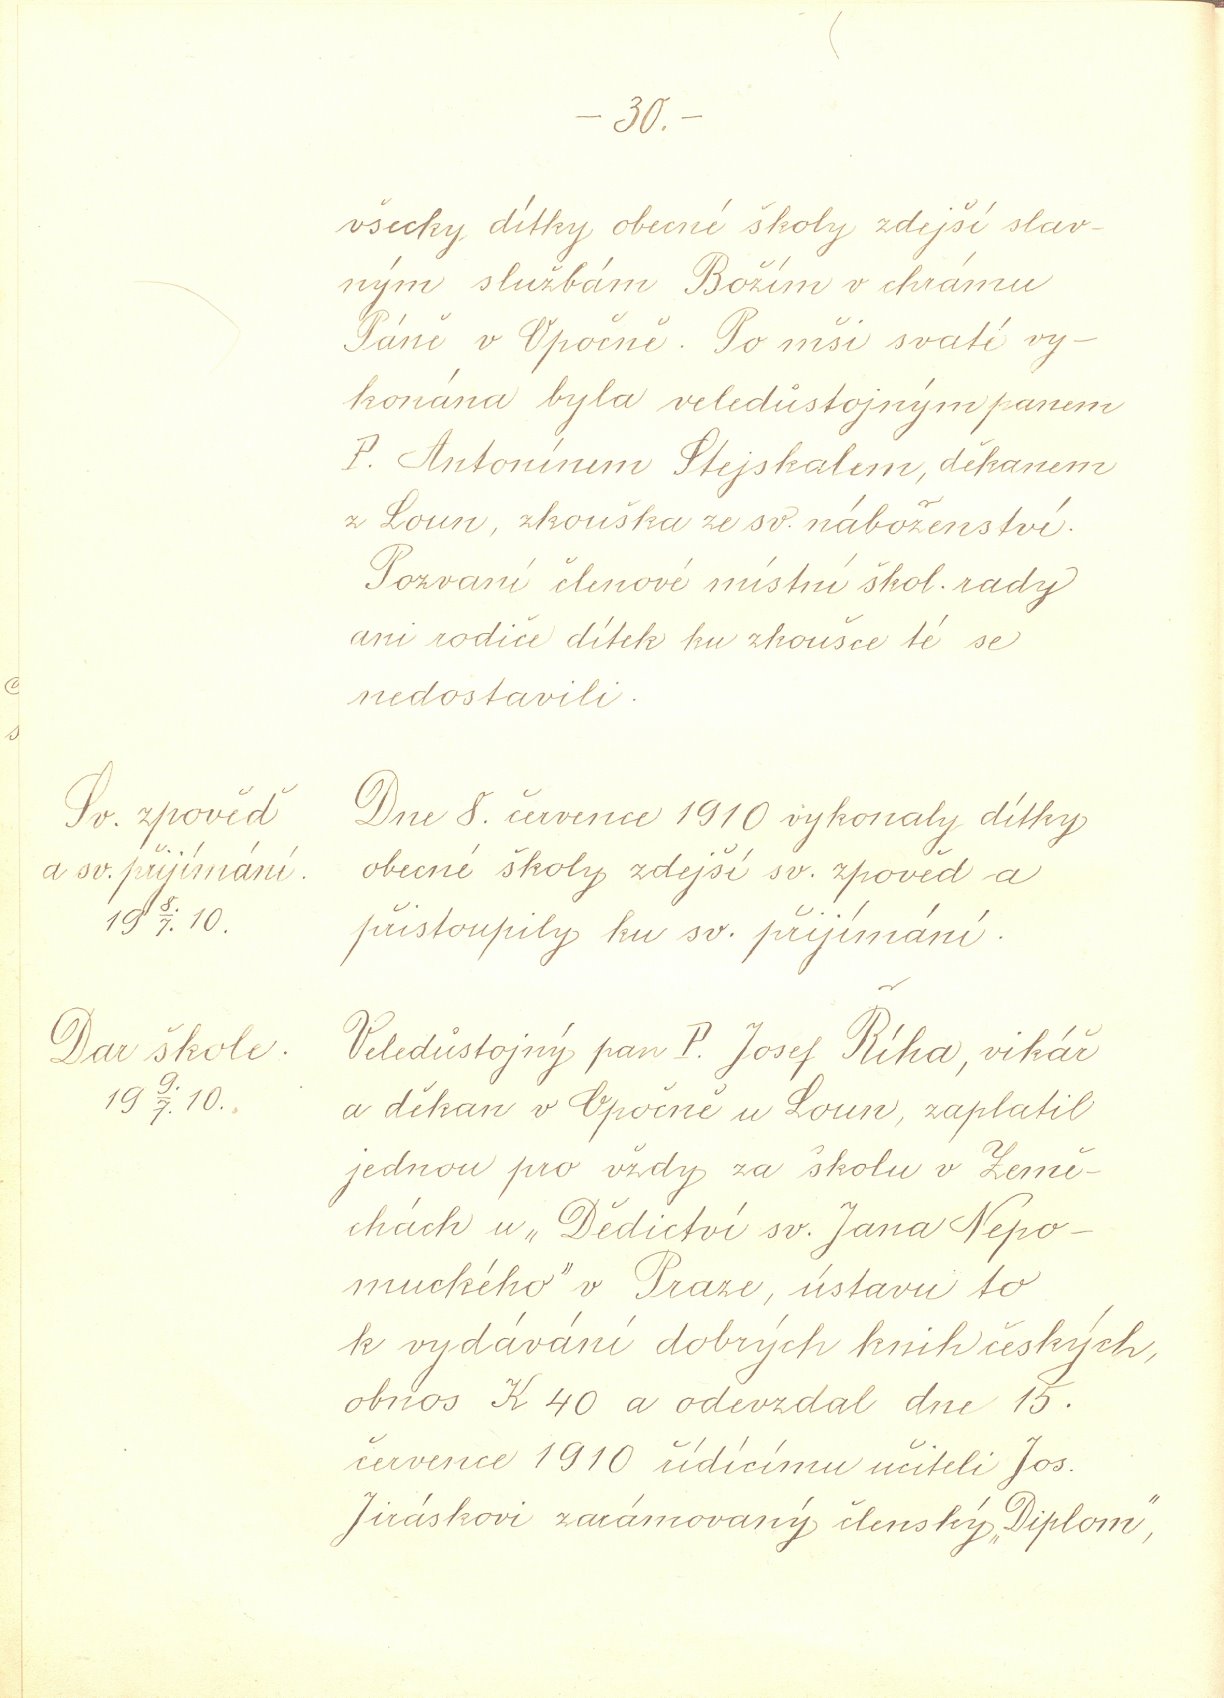 – 30. –
všecky dítky obecné školy zdejší slav-
ným službám Božím v chrámu
Páně v Opočně. Po mši svaté vy-
konána byla veledůstojným panem
P. Antonínem Stejskalem, děkanem
z Loun, zkouška ze sv. náboženství.
Pozvaní členové místní škol. rady
ani rodiče dítek ku zkoušce té se
nedostavili.
Sv. zpověď
a sv. přijímání.
19 8./7. 10.
Dne 8. července 1910 vykonaly dítky
obecné školy zdejší sv. zpověd a
přistoupily ku sv. přijímání.
Dar škole.
19 9./7. 10.
Veledůstojný pan P. Josef Říha, vikář
a děkan v Opočně u Loun, zaplatil
jednou pro vždy za školu v Země-
chách u „Dědictví sv. Jana Nepo-
muckého" v Praze, ústavu to
k vydávání dobrých knih českých,
obnos K 40 a odevzdal dne 15.
července 1910 řídícímu učiteli Jos.
Jiráskovi zarámovaný členský „Diplom",